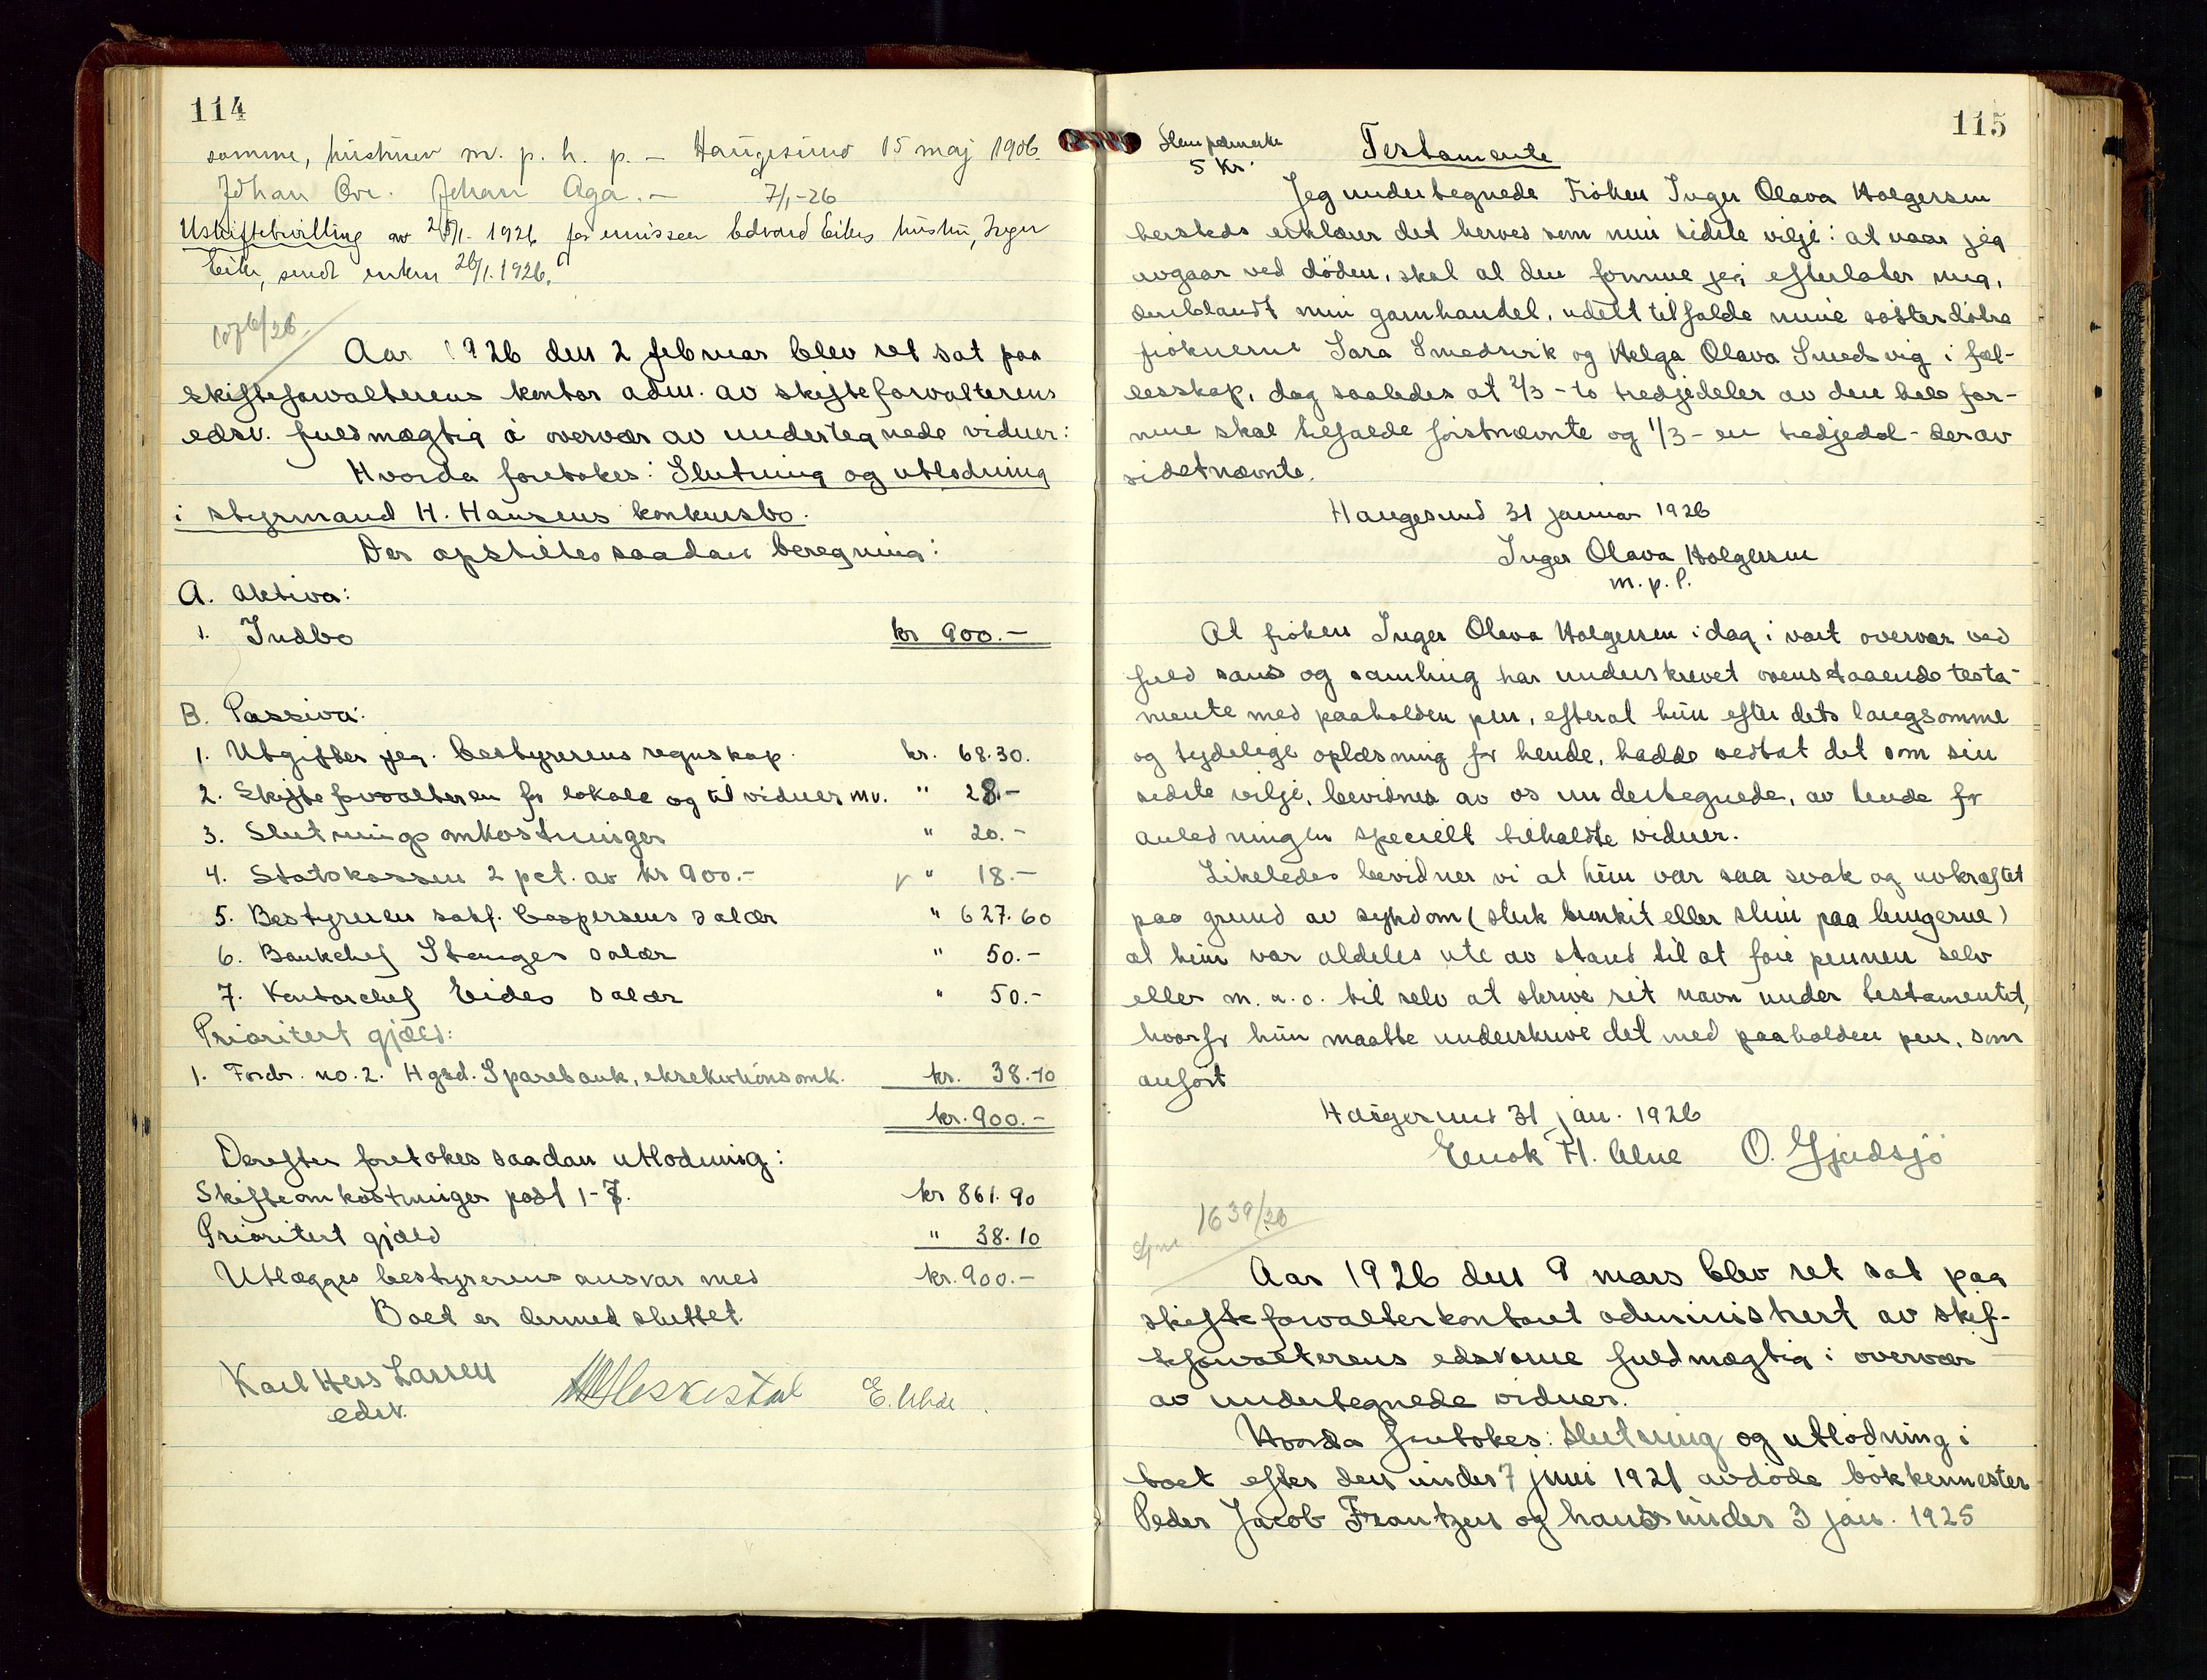 114
samme, hustruer m. p. h. p. – Haugesund 15 maj 1906.
Johan Øvr. Johan Aga. – 7/1-26
Uskiftebevilling av 25/1. 1926 for emissær Edvard Eikes hustru, Inger
Eike, sendt enken 26/1. 1926.
1076/26
Aar 1926 den 2 februar blev ret sat paa
skifteforvalterens kontor adm. av skifteforvalterens
edsv. fuldmægtig i overvær av undertegnede vidner:
Hvorda foretokes: Slutning og utlodning
i styrmand H. Hansens konkursbo.
Der opstilles saadan beregning:
A. Aktiva:
1. Indbo kr 900.–
B. Passiva:
1. Utgifter jeg. bestyrerens regnskap. kr. 68.30.
2. Skifteforvalteren for lokale og til vidner mv. " 28.–
3. Slutningsomkostninger " 20.–
4. Statskassen 2 pct. av kr 900.– " 18.–
5. Bestyreren sakf. Caspersens salær " 627.60
6. Bankchef Stanges salær " 50.–
7. Kontorchef Eides salær " 50.–
Prioritert gjæld:
1. Fordr. no. 2. Hgsd. Sparebank, eksekutionsomk. kr. 38.10
kr. 900.–
Derefter foretokes saadan utlodning:
Skifteomkostninger post 1-7. kr 861.90
Prioritert gjæld " 38.10
Utlægges bestyrerens ansvar med kr. 900.–
Boet er dermed sluttet.
Karl Hess Larsen
edsv.
Meskestad E. Uhde.
115
Stempelmerke
5 kr.
Testamente
Jeg undertegnede Frøken Inger Olava Holgersen
hersteds erklærer det herved som min sidste vilje: at naar jeg
avgaar ved døden, skal al den formue jeg efterlater mig,
deriblandt min garnhandel, udelt tilfalde mine søsterdøtre
frøknerne Sara Smedsvik og Helga Olava Smedsvig i fæl-
lesskap, dog saaledes at 2/3 – to tredjedeler av den hele for-
mue skal tilfalde førstnævnte og 1/3 – en tredjedel – derav
sidstnævnte.
Haugesund 31 januar 1926
Inger Olava Holgersen
m. p. P.
At frøken Inger Olava Holgersen idag i vort overvær ved
fuld sans og samling har underskrevet ovenstaaende testa-
mente med paaholden pen, efterat hun efter dets langsomme
og tydelige oplæsning for hende, hadde vedtat det som sin
sidste vilje, bevidnes av os undertegnede, av hende for
anledningen specielt tilkaldte vidner.
Likeledes bevidner vi at hun var saa svak og avkræftet
paa grund av sykdom (sluk bronkit eller slim paa lungerne)
at hun var aldeles ute av stand til at føre pennen selv
eller m. a. o. til selv at skrive sit navn under testamentet,
hvorfor hun maatte underskrive det med paaholden pen, som
anført
Haugesund 31 jan. 1926
Enok H. Clne O. Gjerdsjö
1639/26
Aar 1926 den 9 mars blev ret sat paa
skifteforvalterkontoret administrert av skif-
teforvalterens edsvorne fuldmægtig i overvær
av undertegnede vidner.
Hvorda foretokes: Slutning og utlodning i
boet efter den under 7 juni 1921 avdøde bøkkermester
Peder Jacob Frantzen og hans under 3 jan. 1925